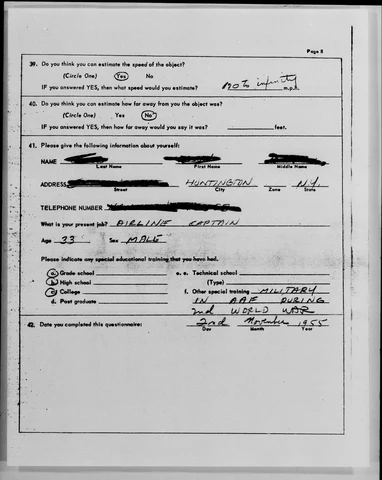 Page 8
39. Do you think you can estimate the speed of the object?
(Circle One) Yes No
IF you answered YES, then what speed would you estimate? 170 to infinity m.p.h.
40. Do you think you can estimate how far away from you the object was?
(Circle One) Yes No
IF you answered YES, then how far away would you say it was? feet.
41. Please give the following information about yourself:
NAME
Last Name First Name Middle Name
ADDRESS HUNTINGTON N.Y.
Street City Zone State
TELEPHONE NUMBER
What is your present job? AIRLINE CAPTAIN
Age 33 Sex MALE
Please indicate any special educational training that you have had.
a. Grade school e. Technical school
b. High school (Type)
c. College f. Other special training MILITARY
d. Post graduate IN AAF DURING
2nd WORLD WAR
42. Date you completed this questionnaire: 2nd November 1955
Day Month Year